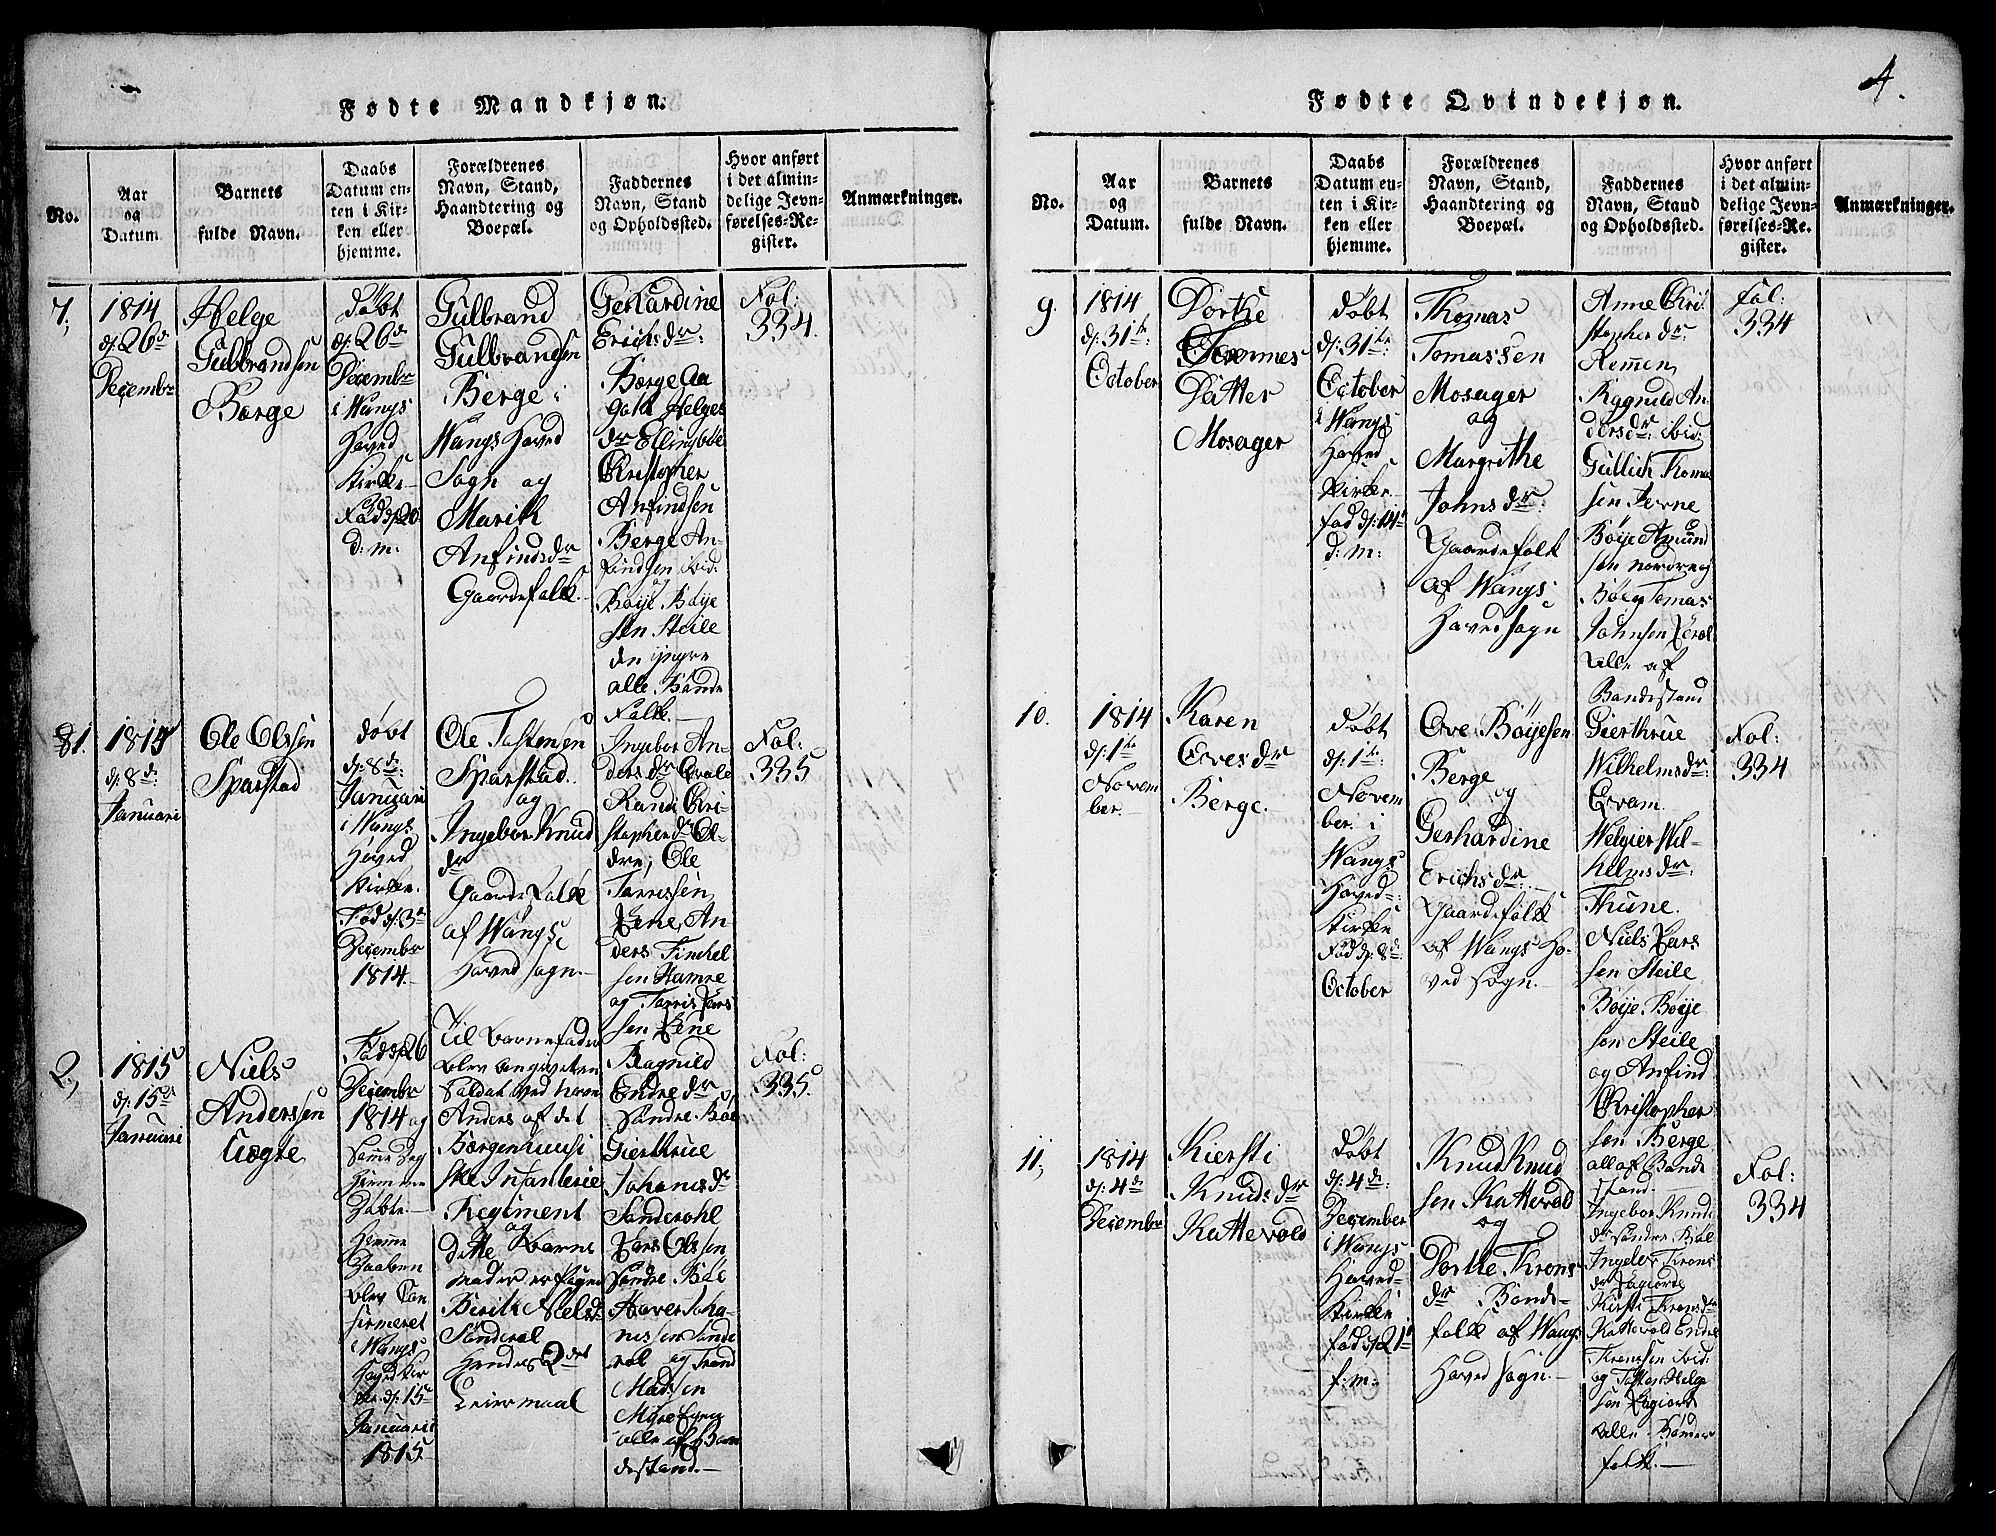 Fødte Mandkjøn.
No.
Aar
og
Datum
Barnets
fulde Navn.
Daabs
Datum en-
ten i Kir-
ken eller
hjemme.
Forældrenes
Navn, Stand,
Haandtering og
Boepæl.
Faddernes
Navn, Stand
og Opholdssted.
Hvor anført
i det almin-
delige Jevn-
førelses-Re-
gister.
Anmærkninger.
7,
1814
d: 26de
Decembr
Helge
Gulbrandsen
Berge
døbt
d: 26de
Decembr
i Wangs
Hoved
Kirke
Fød d: 20
d: m:
Gulbrand
Gulbrandsen
Berge i
Wangs Hoved
Sogn og
Marith
Anfindsdr
Gaardefolk.
Gerhardine
Erichsdr:
Berge Aa
gott Helges
dr Ellingbøe
Christopher
Anfindsen
Berge An-
findsen ibid:
og
Bøye Bøye
sen Steile
den yngre
alle Bønde
Folk.
Fol:
334.
1.
1815
d: 8de
Januari
Ole Olssen
Sparstad
døbt
d: 8de:
Januari
i Wangs
Hoved
Kirke.
Fød d: 3de
Decembr
1814.
Ole Tostensen
Sparstad
og
Ingebor Knud
dr
Gaarde Folk
af Wangs
Hoved sogn.
Ingebor An-
dersdr Qvale
Randi Chri-
stopherdr Øl-
dre, Ole
Torrissen
Lene, An
ders Finkel
sen Hamre
og Torris Lars
sen Lene
Fol:
335
2,
1815
d: 15de
Januari
Niels
Anderssen
Fød d: 26
Decembr
1814 og
Samme Dag
hiemme
Døbt
Hiemme
Daaben
blev Con
firmeret
i Wangs
Hoved Kir
ke d: 15
Januarii
1815
Til Barnefader
blev angiven
Soldat ved navn
Anders af det
Bergenhuusi
ske Infanterie
Regiment
og
dette Barns
Moder er Pigen
Berith Nielsdr
Sønderol
Hendes 2det
Leiermaal
Ragnild
Endredr
Søndre Bøe
Gierthrue
Johanesdr
Sønderohl
Lars Olssen
Søndre Bøe
Haver Joha-
nessen Sønde
rol og Trond
Madssen
alle af Bøn
destand.
Fol:
335
4.
Fødte Qvindekjøn.
No.
Aar
og
Datum.
Barnets
fulde Navn.
Daabs
Datum en-
ten i Kir-
ken eller
hjemme.
Forældrenes
Navn, Stand,
Haandtering og
Boepæl.
Faddernes
Navn, Stand
og Opholdssted.
Hvor anført
i det almin-
delige Jevn-
førelses-Re-
gister.
Anmærkninger.
9.
1814
d: 31te:
October
Dorthe
Datter
Mosager
døbt
d: 31te
October
i Wangs
Hoved
Kirke
fød d: 14de
d: m:
Thomas
Tomassen
Mosager
og
Margrithe
Johnsdr:
Gaardefolk
af Wangs
Hoved sogn
Anne Chri
stopherdr:
Remmen,
Ragnild An
dersdr: ibid:
Gullich Thomas
sen
Bøye Amund
sen nordre
Tomas
Johnsen
alle af
Bondestand
Fol:
334
10.
1814
d: 1te
Novem
ber.
Karen
Ovesdr
Berge.
døbt
d: 1te
Novem
ber i
Wangs
Hoved
Kirke
Fød d: 8de
October
Ove Bøyesen
Berge
og
Gerhardine
Erichsdr:
Gaardefolk
af Wangs Ho-
ved Sogn.
Gierthrue
Wilhelmsdr:
Qvam.
Welgier Wil-
helmsdr:
Thune.
Niels Lars
sen Steile
Bøye Bøye
sen Steile
og Anfind
Christopher
sen Berge
all af Bonde
stand.
Fol:
334
11,
1814
d: 4de
Decembr
Kiersti
Knudsdr
Kattevold
Døbt
d: 4de
December
i Wangs
Hoved
Kirke
fød d: 21de
f: m:
Knud Knud
sen Kattevold
og
Dorthe Trons
dr Bønde-
folk af Wangs
Hoved Sogn.
Ingebor Knuds
dr Søndre Bøe
Ingebor Trons
dr
Kirsti Tronsdr
Kattevold Endre
Tronssen ibid:
og Tosten Helge
sen
alle Bønder
folk.
Fol:
334